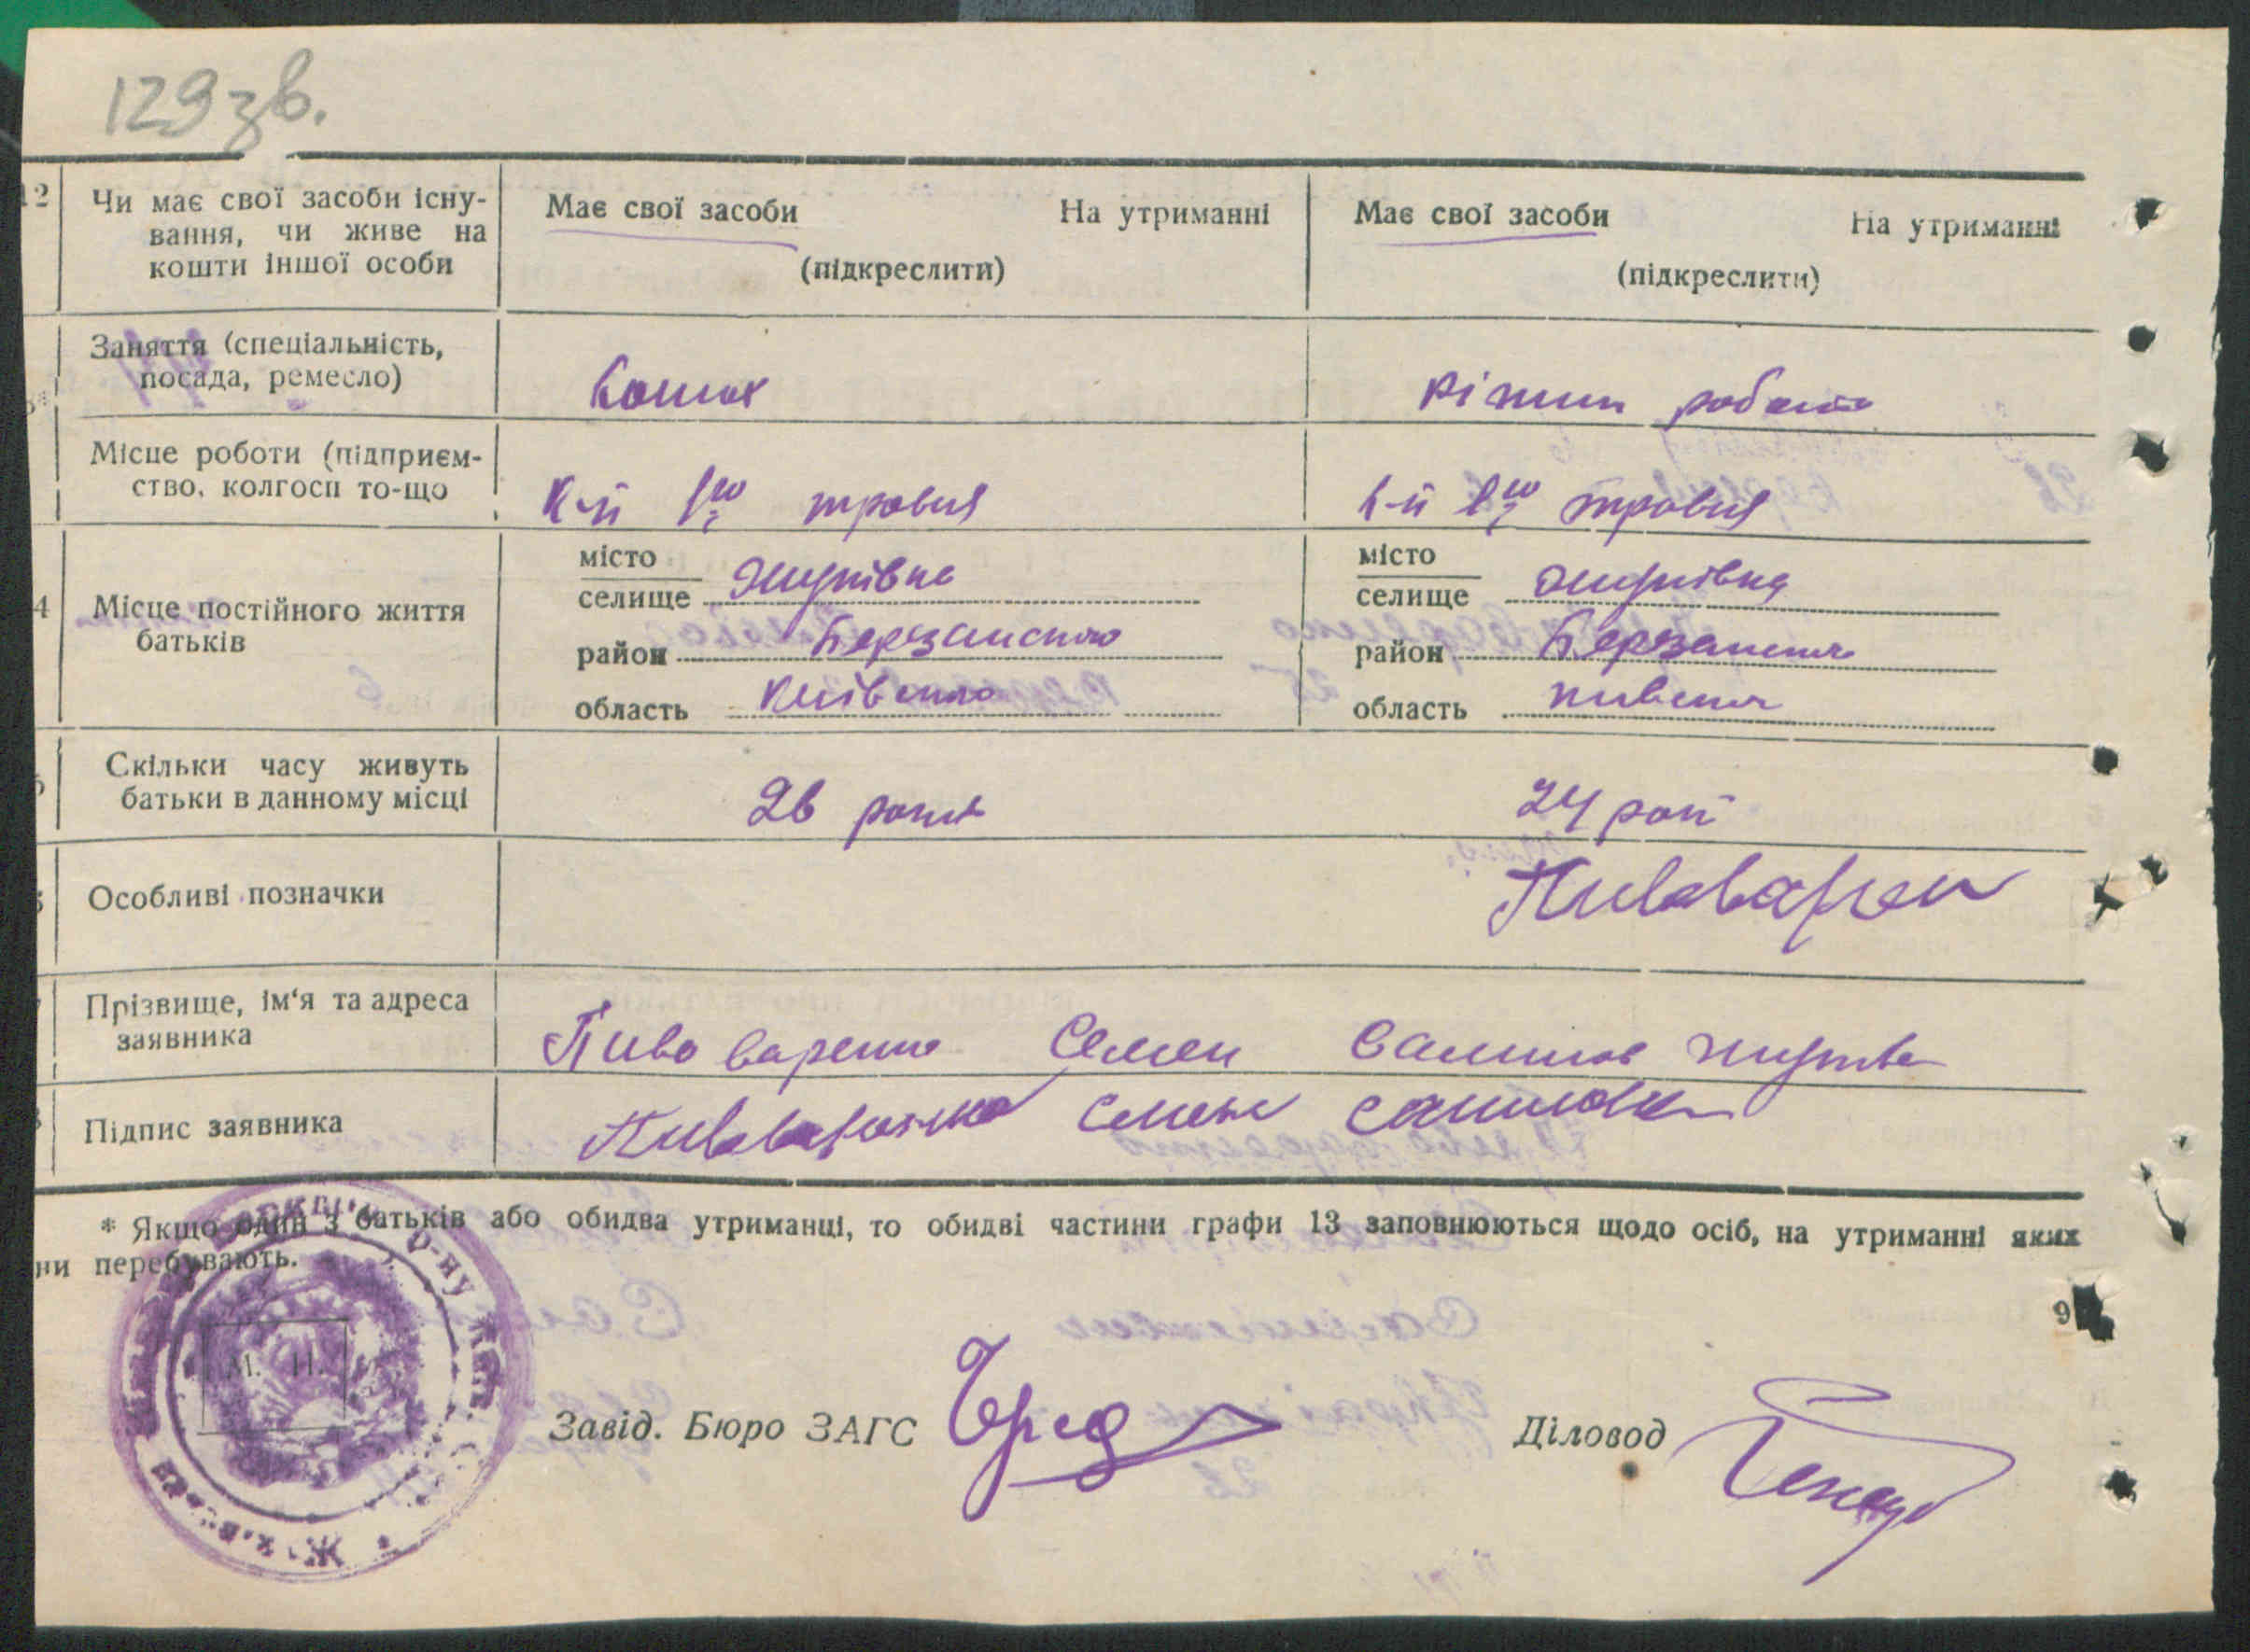 129 зв.
12 Чи має свої засоби існу-
вання, чи живе на
кошти іншої особи
Має свої засоби На утриманні
(підкреслити)
Має свої засоби На утриманні
(підкреслити)
Заняття (спеціальність,
посада, ремесло)
різни робота
Місце роботи (підприєм-
ство, колгосп то-що
К-п 1го травня
К-п 1го травня
4 Місце постійного життя
батьків
місто
селище Жуківка
район Березанського
область Київська
місто
селище Жуківка
район
область
Скільки часу живуть
батьки в данному місці
26 років
24 рок
Особливі позначки
Пивоварен
Прізвище, ім'я та адреса
заявника
Пивоваренко Семен
Підпис заявника
Пивоваренко Семен
* Якщо один з батьків або обидва утриманці, то обидві частини графи 13 заповнюються щодо осіб, на утриманні яких
ни перебувають.
9
М. П.
Завід. Бюро ЗАГС
Діловод